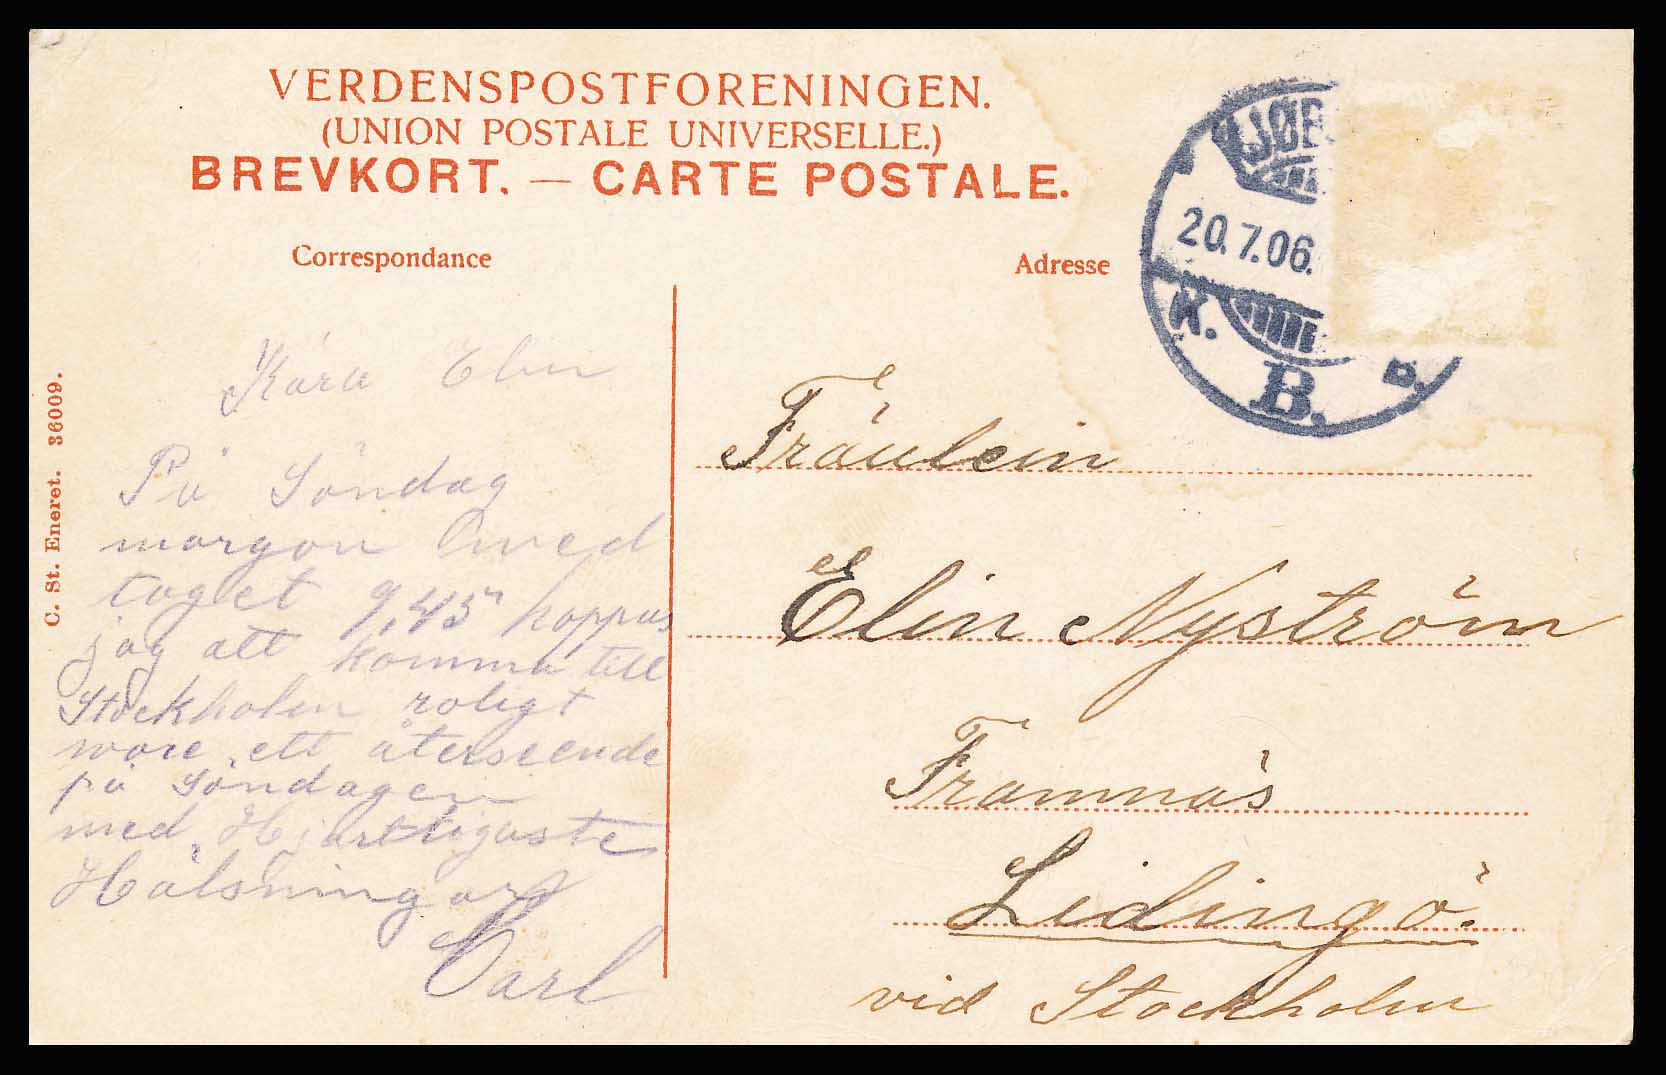 VERDENSPOSTFORENINGEN.
(UNION POSTALE UNIVERSELLE.)
BREVKORT. — CARTE POSTALE.
Correspondance
Adresse
C. St. Eneret. 36009.
JØB
20.7.06.
K. B.
B.
Kära Elin
På Söndag
morgon med
toget 9,45 hoppas
jag att komma till
Stockholm roligt
wore ett återseende
på Söndagen
med Hjärtligaste
Hälsningar
Carl
Fräulein
Elin Nyström
Framnäs
Lidingö.
vid Stockholm